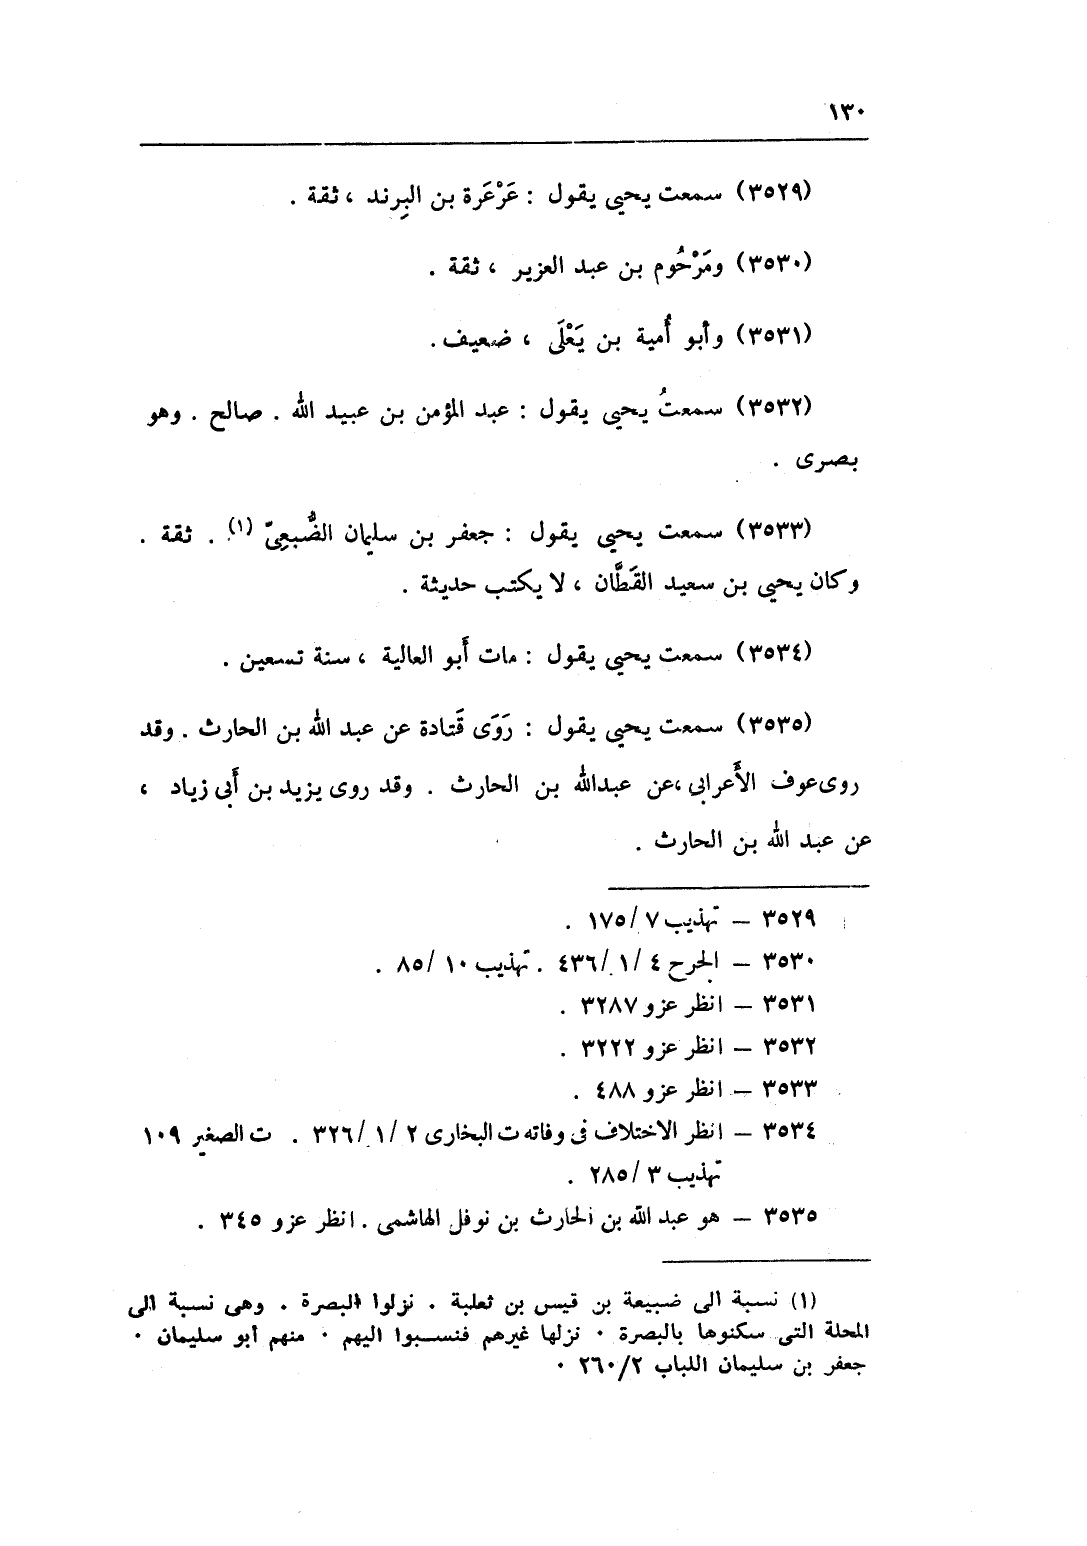 ١٣٠
(٣٥٢٩) سمعت يحيى يقول : عَرْعَرة بن البِرند ، ثقة .
(٣٥٣٠) ومَرْحُوم بن عبد العزيز ، ثقة .
(٣٥٣١) وأبو أُمية بن يَعْلَى ، ضعيف .
(٣٥٣٢) سمعتُ يحيى يقول : عبد المؤمن بن عبيد الله . صالح . وهو
بصرى .
(٣٥٣٣) سمعت يحيى يقول : جعفر بن سليمان الضُّبعِىّ (١) . ثقة .
وكان يحيى بن سعيد القَطَّان ، لا يكتب حديثة .
(٣٥٣٤) سمعت يحيى يقول : مات أَبو العالية ، سنة تسعين .
(٣٥٣٥) سمعت يحيى يقول : رَوَى قَتادة عن عبد الله بن الحارث . وقد
روى عوف الأَعرابى ،عن عبدالله بن الحارث . وقد روى يزيد بن أَبى زياد ،
عن عبد الله بن الحارث .
٣٥٢٩ – تهذيب ٧/ ١٧٥ .
٣٥٣٠ – الجرح ٤ /١/ ٤٣٦ . تهذيب ١٠/ ٨٥ .
٣٥٣١ – انظر عزو ٣٢٨٧ .
٣٥٣٢ – انظر عزو ٣٢٢٢ .
٣٥٣٣ – انظر عزو ٤٨٨ .
٣٥٣٤ – انظر الاختلاف فى وفاته ت البخارى ٢ /١/ ٣٢٦ . ت الصغير ١٠٩
تهذيب ٣ / ٢٨٥ .
٣٥٣٥ – هو عبد الله بن الحارث بن نوفل الهاشمى . انظر عزو ٣٤٥ .
(١) نسبة الى ضبيعة بن قيس بن ثعلبة . نزلوا البصرة . وهى نسبة الى
المحلة التى سكنوها بالبصرة . نزلها غيرهم فنسبوا اليهم . منهم أبو سليمان .
جعفر بن سليمان اللباب ٢٦٠/٢ .